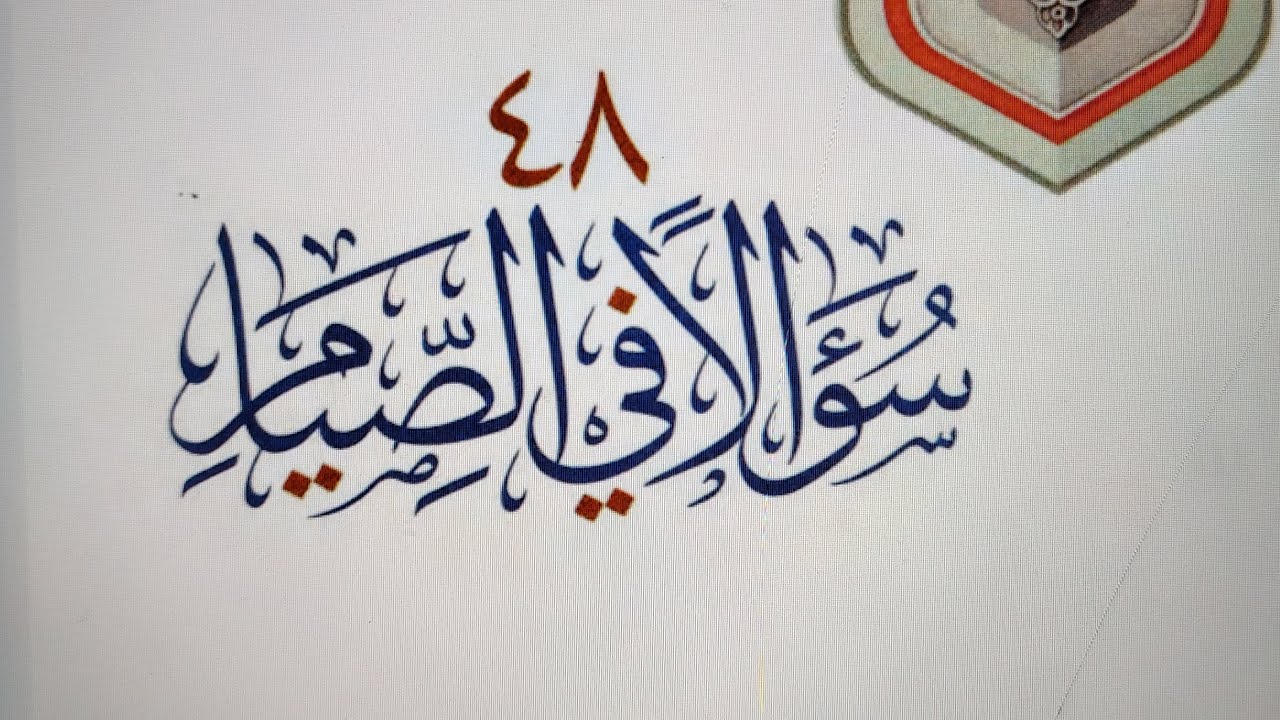 ٤٨
سُؤَالاً فِي الصِّيَامِ